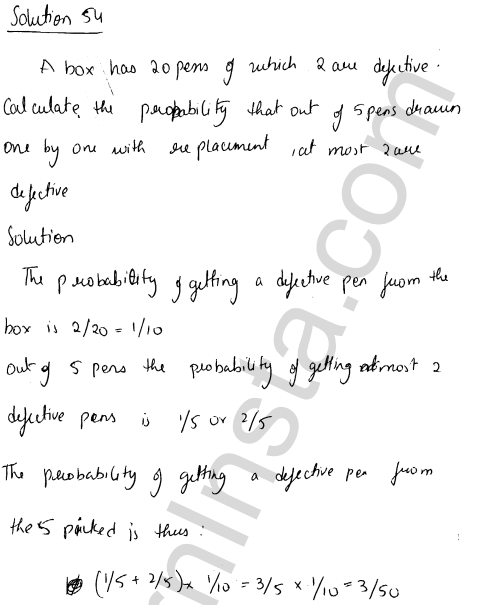 Solution 54
A box has 20 pens of which 2 are defective.
Calculate the probability that out of 5 pens drawn
one by one with replacement, at most 2 are
defective
Solution
The probability of getting a defective pen from the
box is 2/20 = 1/10
out of 5 pens the probability of getting atmost 2
defective pens is 1/5 or 2/5
The probability of getting a defective pen from
the 5 picked is thus:
(1/5 + 2/5) x 1/10 = 3/5 x 1/10 = 3/50